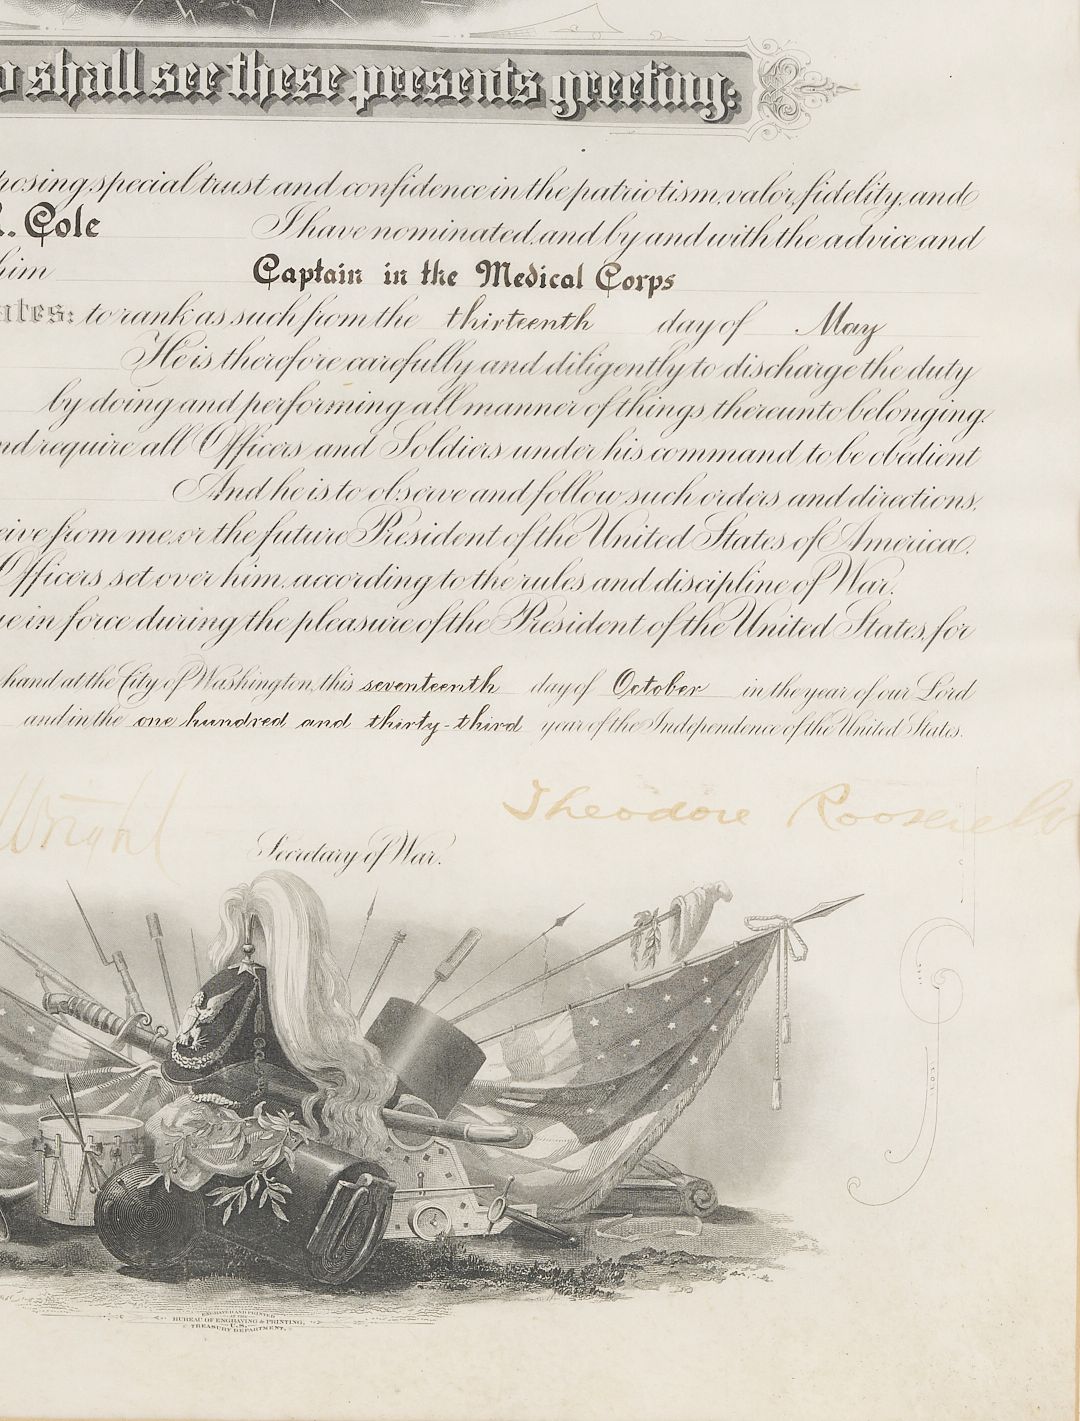 shall see these presents greeting:
special trust and confidence in the patriotism, valor, fidelity, and
R. Cole I have nominated, and by and with the advice and
him Captain in the Medical Corps
to rank as such from the thirteenth day of May
He is therefore carefully and diligently to discharge the duty
by doing and performing all manner of things thereunto belonging.
require all Officers and Soldiers under his command to be obedient
And he is to observe and follow such orders and directions,
from me, or the future President of the United States of America,
Officers set over him, according to the rules and discipline of War.
in force during the pleasure of the President of the United States, for
hand at the City of Washington, this seventeenth day of October in the year of our Lord
and in the one hundred and thirty-third year of the Independence of the United States.
Wright Theodore Roosevelt
Secretary of War.
ENGRAVED AND PRINTED
BUREAU OF ENGRAVING & PRINTING,
U.S.
TREASURY DEPARTMENT.